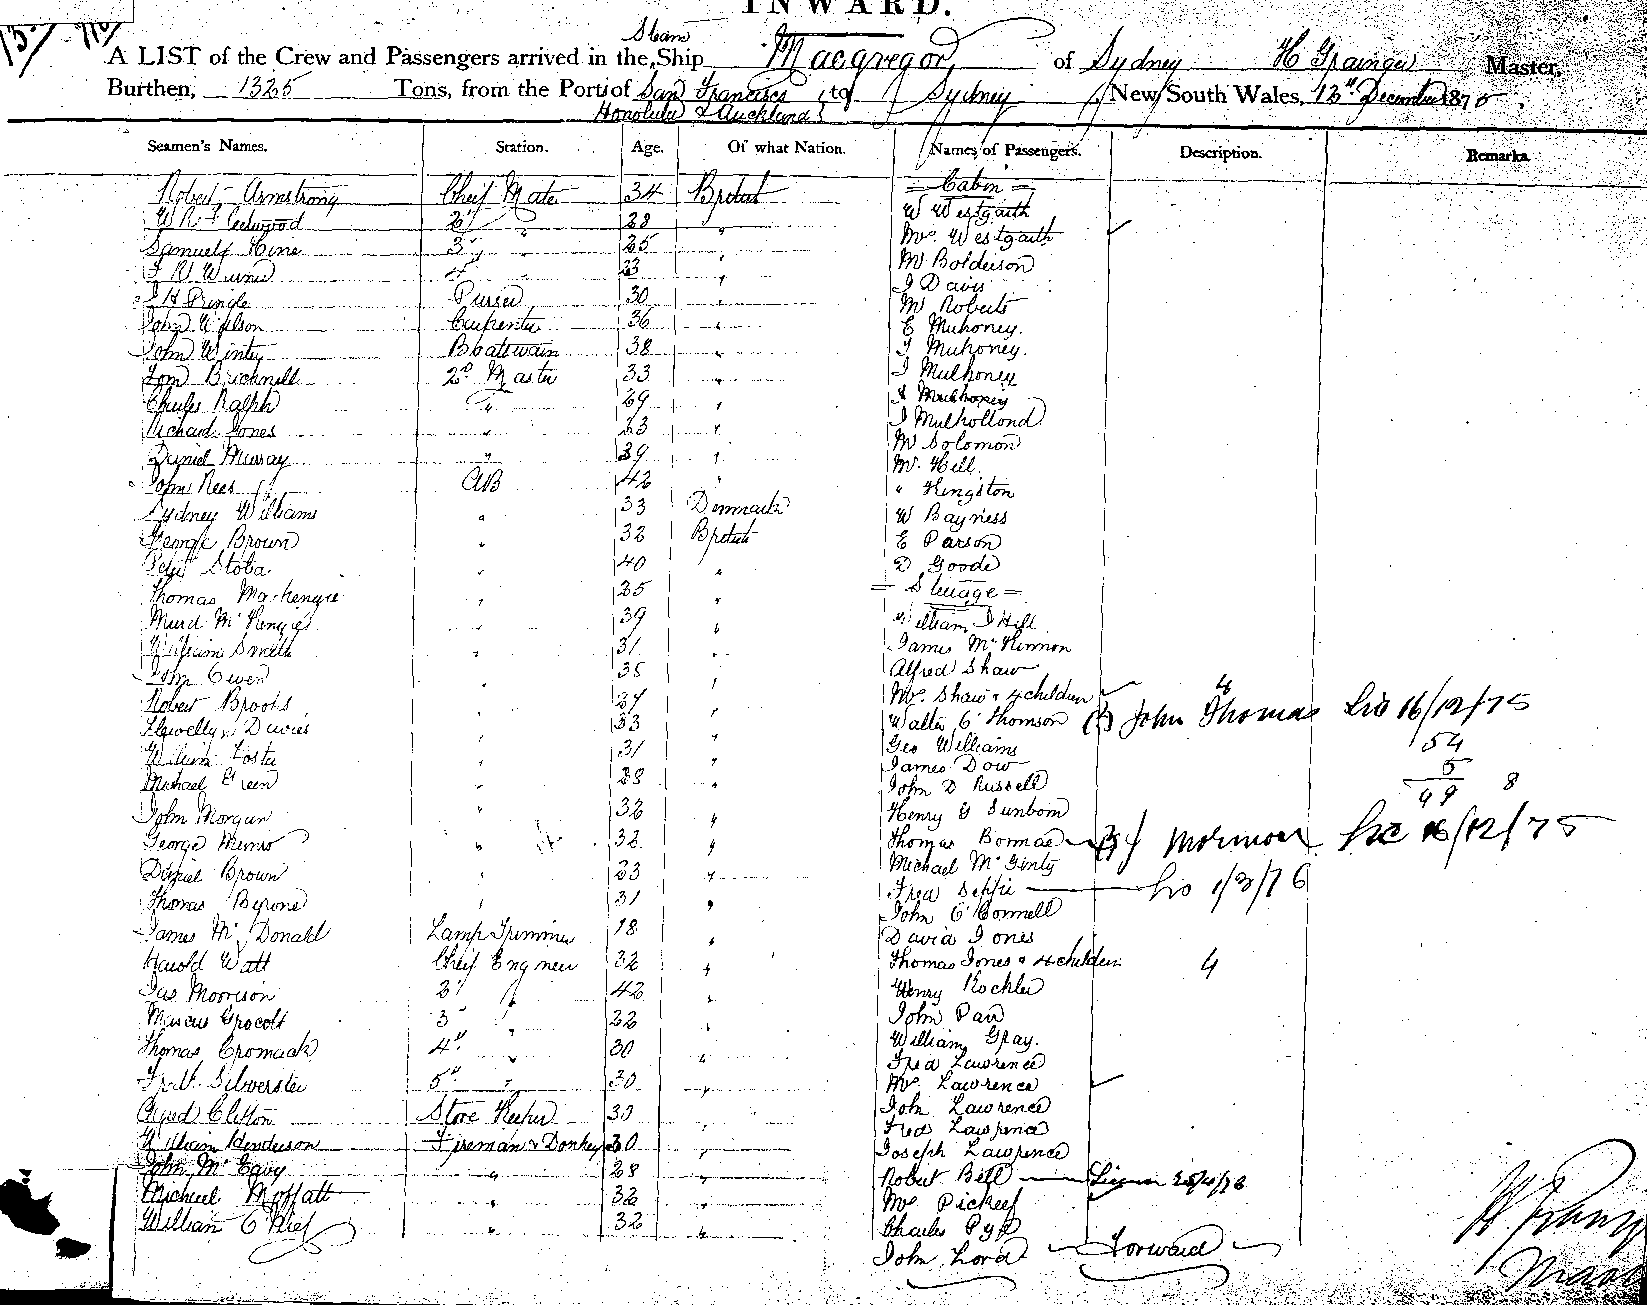 INWARD.
A LIST of the Crew and Passengers arrived in the Steam Ship Macgregor, of Sydney H Grainger Master,
Burthen, 1325 Tons, from the Port of San Francisco, to Sydney New South Wales, 13th December 1875
Honolulu & Auckland
Seamen's Names. Station. Age. Of what Nation. Names of Passengers. Description. Remarks
Robert Armstrong Chief Mate 34 British = Cabin =
W R Fleetwood 2d " 28 " W Westgarth
Samuel Hine 3d " 25 " Mrs. Westgarth
4 " 23 " Mr Bolderson
J H Pringle Purser 30 " J Davis
John Wilson Carpenter 36 " Mr Roberts
John Winter Boatswain 38 " E Muhoney.
Tom Bricknell 2d Master 33 " J Muhoney.
Charles Ralph " 29 " J Mulhoney
Richard Jones " 23 " J Mulhoney
Daniel Murray " 39 " J Mulhollond
John Rees AB 42 " Mr Solomon
Sydney Williams " 33 Denmark Mr. Hill.
George Brown " 32 British " Kingston
Peter Stoba " 40 " W Bayness
Thomas Mackenzie " 25 " E Parson
Murd McKenzie " 39 " D Goode
William Smith " 31 " = Steerage =
John Owen " 35 " William J Hill
Robert Brooks " 37 " James McKinnon
Llewellyn Davies " 33 " Alfred Shaw
William Foster " 31 " Mrs. Shaw & 4 children
Michael Green " 28 " Walter C Thomson John Thomas 16/12/75
John Morgan " 32 " Geo Williams 54
George Munro " 32 " James Dow 5
Daniel Brown " 23 " John D Russell 49 8
Thomas Byrone " 31 " Henry G Sunbom
James McDonald Lamp Trimmer 18 " Thomas Bonnar 16/12/75
Harold Watt Chief Engineer 32 " Michael McGinty
Jas Morrison 2d " 42 " Fred Seppie 1/3/76
Marcus Grocott 3d " 22 " John O'Connell
Thomas Cromack 4th " 30 " David Jones
Silverster 5th " 30 " Thomas Jones & 4 children 4
Clifton Store Keeper 30 " Henry Kochler
William Henderson Fireman & Donkey 30 " John Parr
John McEavy " 28 " William Gray.
Michael Moffatt " 32 " Fred Lawrence
William " 32 " Mrs. Lawrence
John Lawrence
Fred Lawrence
Joseph Lawrence
Robert Bell
Mr
Charles Pyp
John Lord Forward